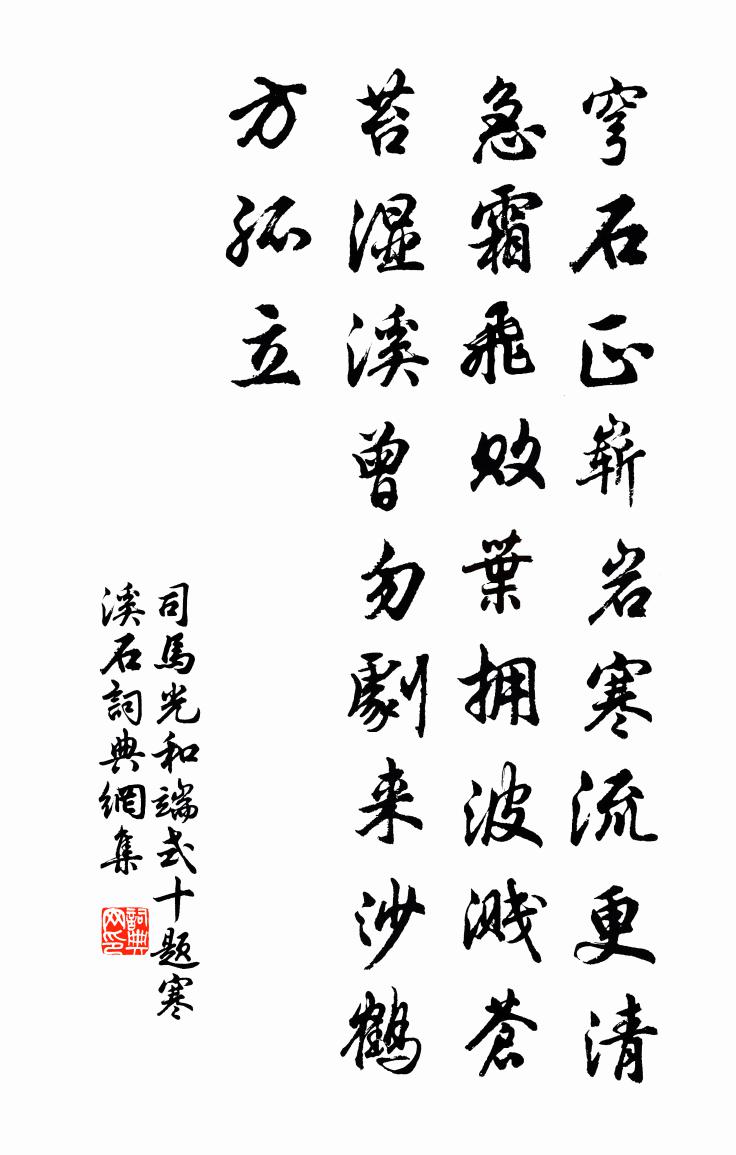 穹石正嶄岩寒流更清
急霜飛敗葉拥波濺蒼
苔湿溪曾勿劇来沙鶴
方孤立
司馬光和端式十题寒
溪石詞典網集
詞典网印